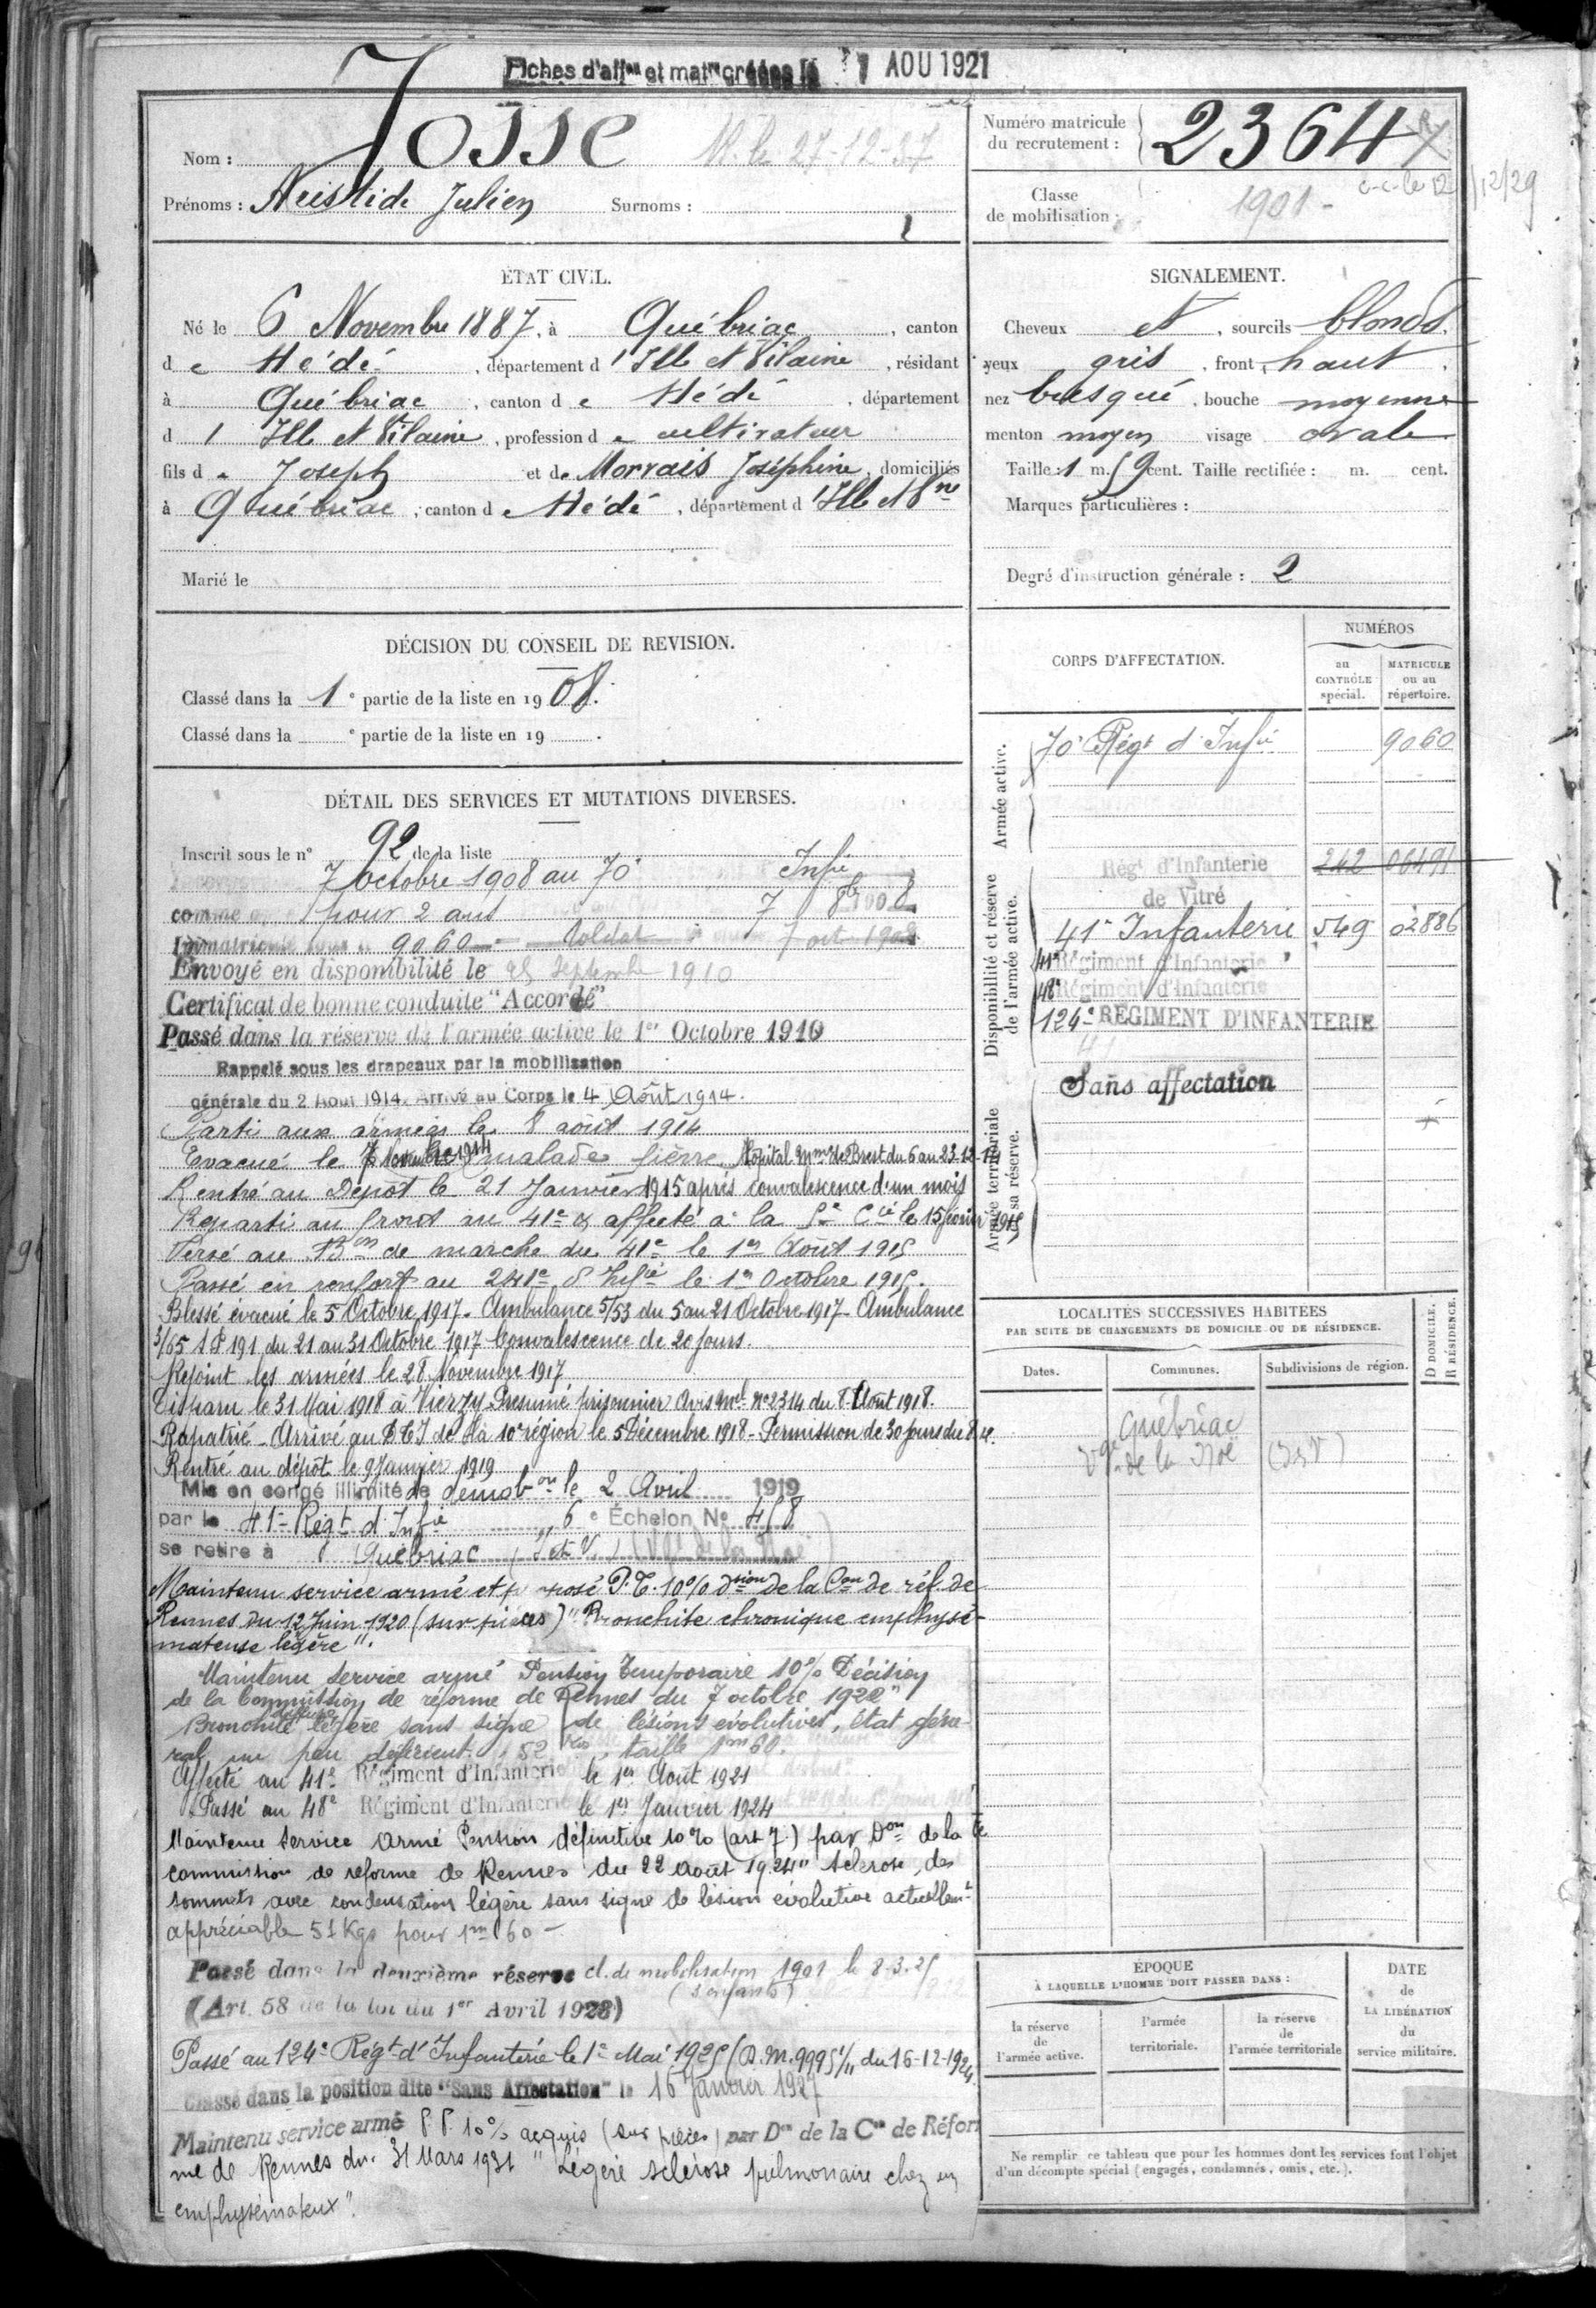 Fiches d'aff^on et mat^le créées le 1 AOU 1921
Nom : Josse
27-12-37
Prénoms : Aristide Julien Surnoms :
Numéro matricule du recrutement : 2364
Classe de mobilisation : 1901 - c-c-le 12/12/29
ÉTAT CIVIL.
Né le 6 Novembre 1887, à Québriac, canton
de Hédé, département d'Ille et Vilaine, résidant
à Québriac, canton de Hédé, département
d'Ille et Vilaine, profession de cultivateur
fils de Joseph et de Morvais Joséphine, domiciliés
à Québriac, canton de Hédé, département d'Ille et V^ne
Marié le
SIGNALEMENT.
Cheveux et, sourcils blonds.
yeux gris, front haut,
nez busqué, bouche moyenne
menton moyen visage ovale
Taille : 1 m. 59 cent. Taille rectifiée : m. cent.
Marques particulières :
Degré d'instruction générale : 2
DÉCISION DU CONSEIL DE REVISION.
Classé dans la 1^e partie de la liste en 1908.
Classé dans la ^e partie de la liste en 19 .
DÉTAIL DES SERVICES ET MUTATIONS DIVERSES.
Inscrit sous le n° 92 de la liste
7 octobre 1908 au 70^e Inf^ie
comme pour 2 ans 7 8^bre 1908
Immatriculé sous le n° 9060 soldat 7 oct 1908
Envoyé en disponibilité le 25 Septembre 1910
Certificat de bonne conduite "Accordé"
Passé dans la réserve de l'armée active le 1^er Octobre 1910
Rappelé sous les drapeaux par la mobilisation
générale du 2 Août 1914. Arrivé au Corps le 4 Août 1914.
Parti aux armées le 8 août 1914
Evacué le 7 Novembre 1914 malade fièvre Hôpital M^me de Brest du 6 au 23-12-14
Rentré au Dépôt le 21 Janvier 1915 après convalescence d'un mois
Reparti au front au 41^e & affecté à la C^ie le 15 février 1915
Versé au B^on de marche du 41^e le 1^er Août 1915
Passé en renfort au 241^e d'Inf^ie le 1^er Octobre 1915.
Blessé évacué le 5 Octobre 1917 - Ambulance 5/53 du 5 au 21 Octobre 1917 - Ambulance
3/65 SP 191 du 21 au 31 Octobre 1917 Convalescence de 20 jours.
Rejoint les armées le 28 Novembre 1917
Disparu le 31 Mai 1918 à Vierzy Présumé prisonnier Avis M^el N° 2314 du 8 Août 1918.
Rapatrié - Arrivé au DTI de la 10^e région le 5 Décembre 1918 - Permission de 30 jours du 8 d^o.
Rentré au dépôt le 9 Janvier 1919
Mis en congé illimité de démob^on le 2 Avril 1919
par le 41^e Rég^t d'Inf^ie 6^e Échelon N° 458
se retire à Québriac (I et V.) (V^ge de la Noë)
Maintenu service armé et proposé P.T. 10% d^sion de la C^on de réf. de
Rennes du 12 Juin 1920 (sur pièces) "Bronchite chronique emphysé-
mateuse légère".
Maintenu service armé Pension temporaire 10% Décision
de la Commission de réforme de Rennes du 7 octobre 1922 "
Bronchite diffuse légère sans signe de lésions évolutives, état géné-
ral un peu déficient. 52 K^os, taille 1^m60.
Affecté au 41^e Régiment d'Infanterie le 1^er Août 1921
Passé au 48^e Régiment d'Infanterie le 1^er Janvier 1924
Maintenu service armé Pension définitive 10% (art 7) par D^on de la
commission de réforme de Rennes du 22 août 1924 "sclérose des
sommets avec condensation légère sans signe de lésion évolutive actuellem^t
appréciable 51 Kgs pour 1^m60 -
Passé dans la deuxième réserve cl. de mobilisation 1901 le 8-3-25
(Art. 58 de la loi du 1^er Avril 1923) (3 enfants)
Passé au 124^e Rég^t d'Infanterie le 1^er Mai 1925 (D.M. 9995 1/11 du 16-12-1924.
Classé dans la position dite "Sans Affectation" le 16 Janvier 1927
Maintenu service armé P.P. 10% acquis (sur pièces) par D^on de la C^on de Réfor
me de Rennes du 31 Mars 1931 "Légère sclérose pulmonaire chez un
emphysémateux".
CORPS D'AFFECTATION.
NUMÉROS
au CONTRÔLE spécial.
MATRICULE ou au répertoire.
Armée active.
70^e Rég^t d'Inf^ie 9060
Disponibilité et réserve de l'armée active.
Rég^t d'Infanterie de Vitré 242 06491
41^e Infanterie 549 02886
41^e Régiment d'Infanterie
48^e Régiment d'Infanterie
124^e RÉGIMENT D'INFANTERIE
Armée territoriale et sa réserve.
Sans affectation
LOCALITÉS SUCCESSIVES HABITÉES
PAR SUITE DE CHANGEMENTS DE DOMICILE OU DE RÉSIDENCE.
D DOMICILE.
R RÉSIDENCE.
Dates. Communes. Subdivisions de région.
Québriac
V^ge de la Noë (I et V)
ÉPOQUE
À LAQUELLE L'HOMME DOIT PASSER DANS :
la réserve de l'armée active.
l'armée territoriale.
la réserve de l'armée territoriale
DATE de LA LIBÉRATION du service militaire.
Ne remplir ce tableau que pour les hommes dont les services font l'objet
d'un décompte spécial (engagés, condamnés, omis, etc.).